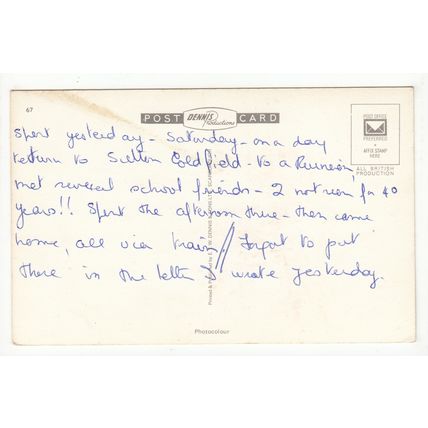 67
POST DENNIS Productions CARD
POST OFFICE
PREFERRED
AFFIX STAMP
HERE
ALL BRITISH
PRODUCTION
Spent yesterday - Saturday - on a day
return to Sutton Coldfield - to a Reunion,
met several school friends - 2 not seen for 40
years!! Spent the afternoon there - then came
home, all via train / Forgot to put
these in the letter I wrote yesterday.
Photocolour